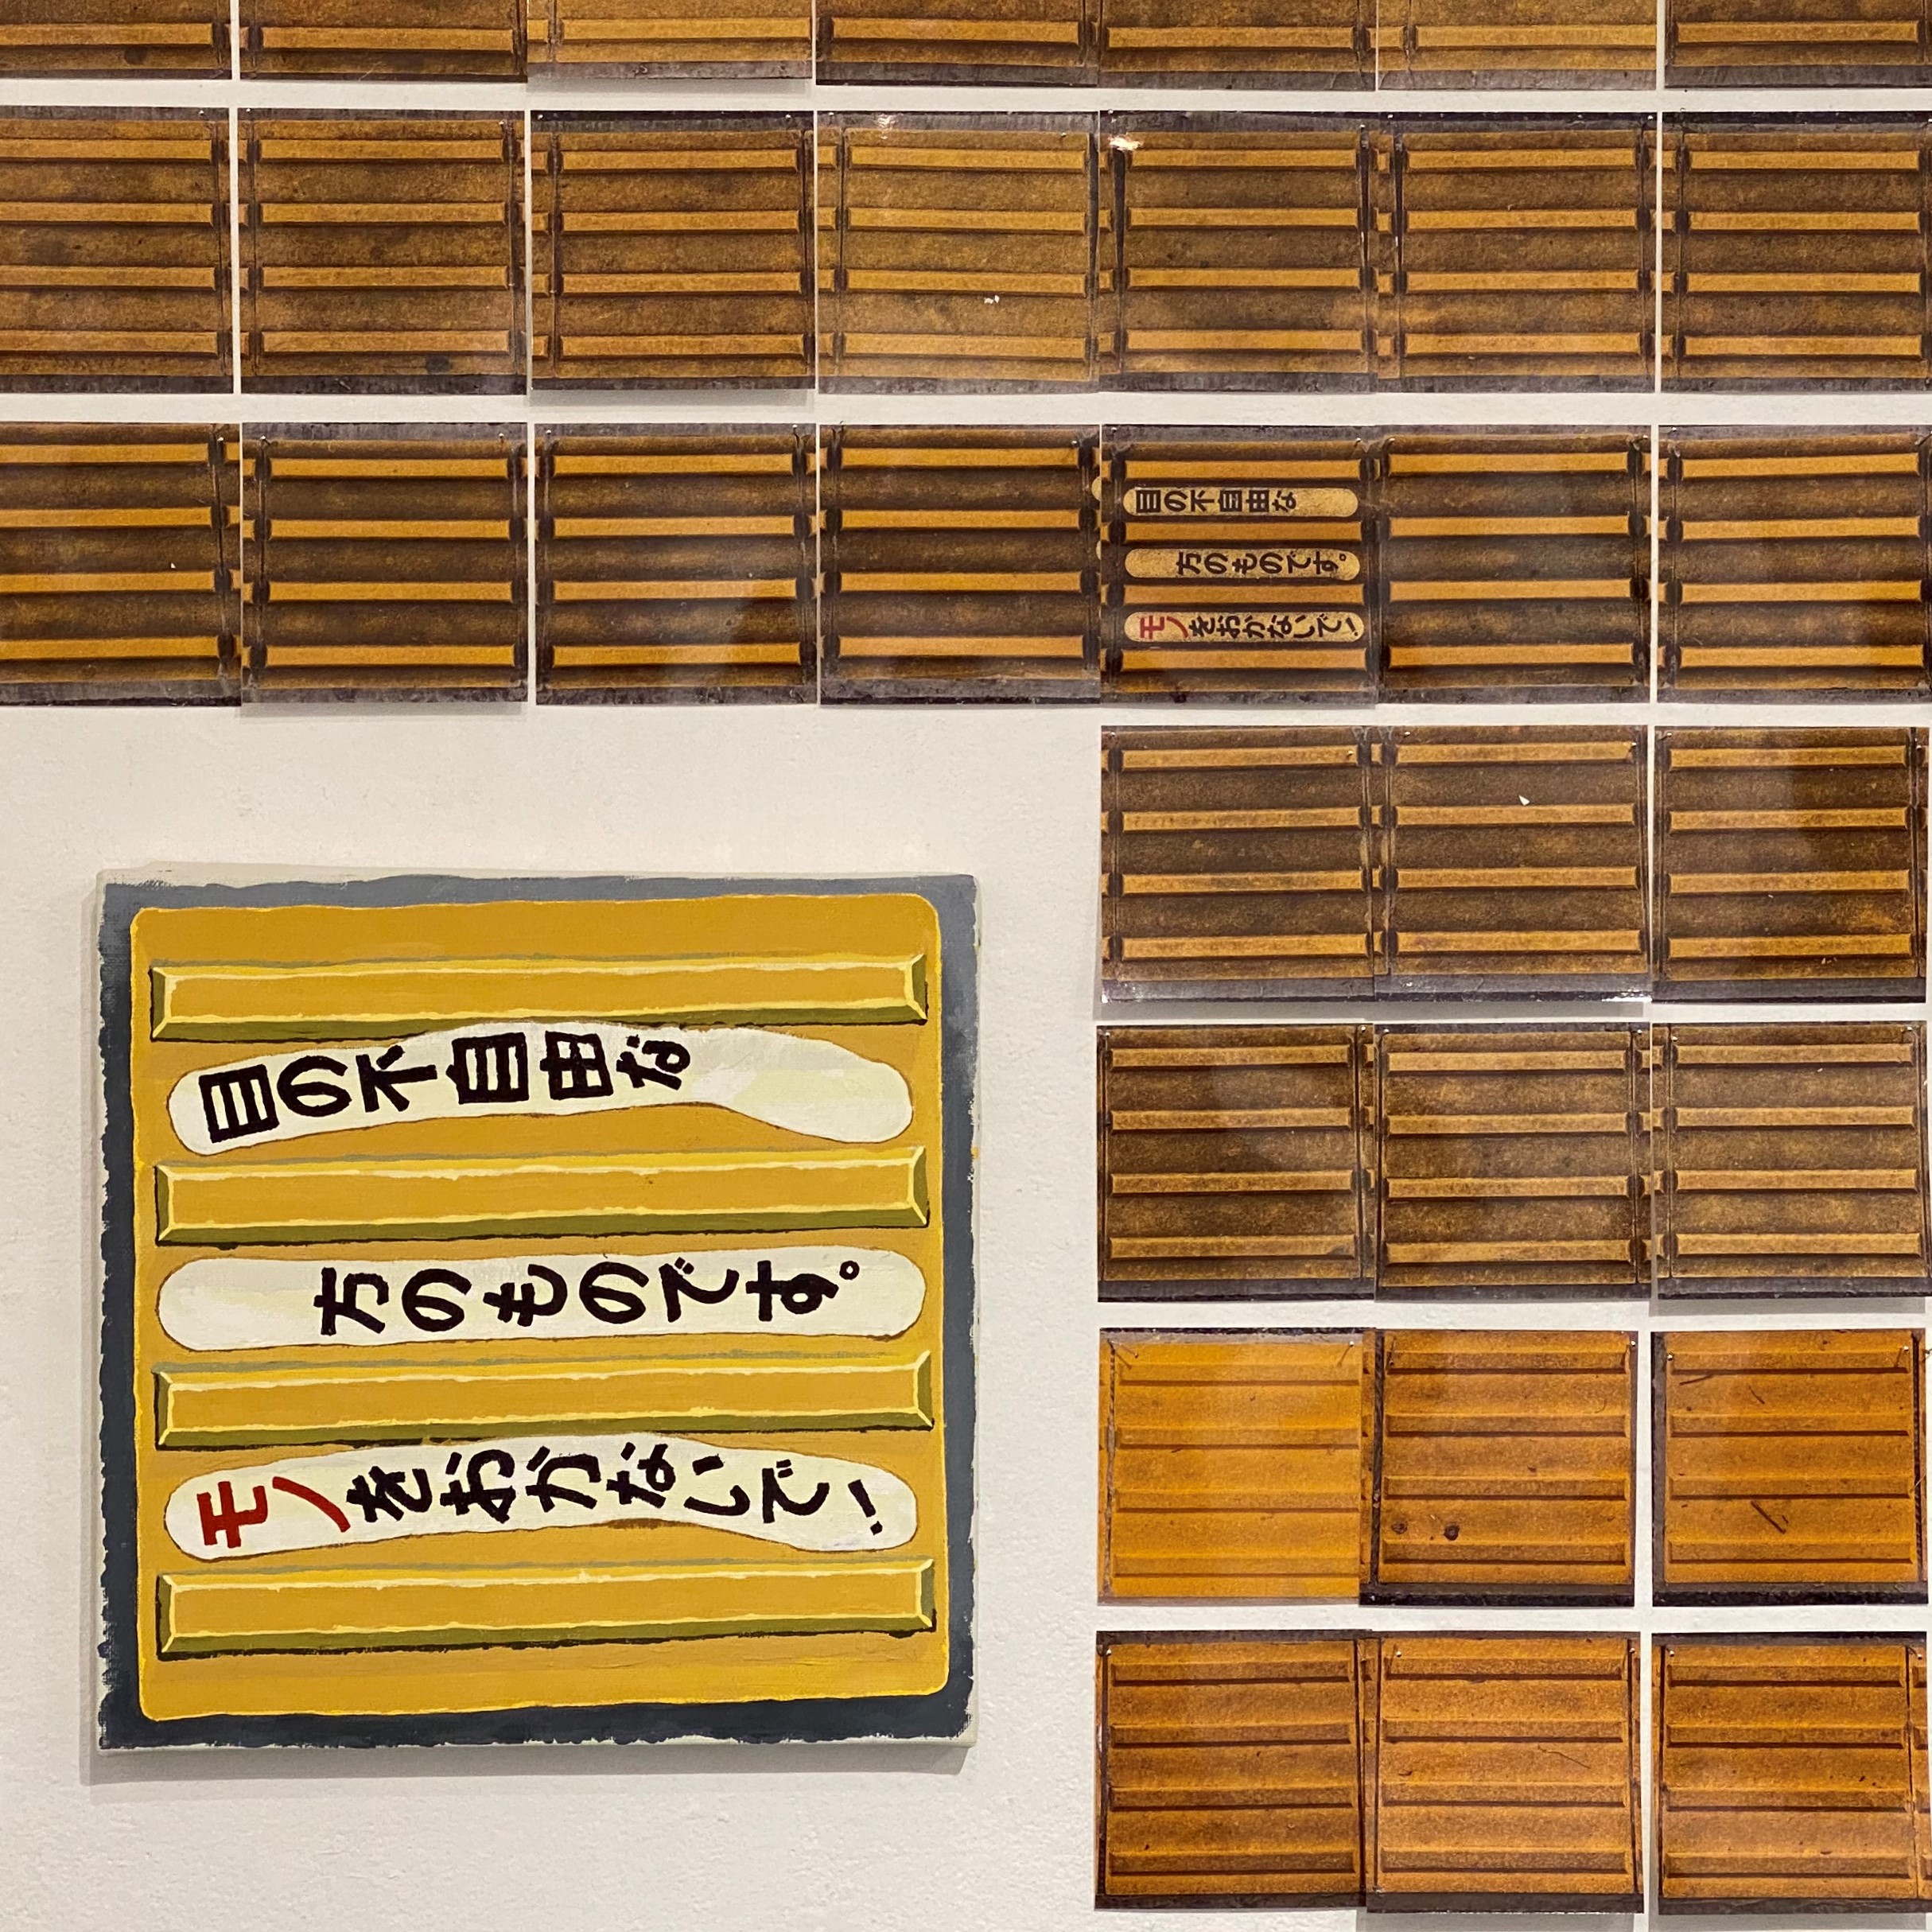 目の不自由な
方のものです。
モノをおかないで!
目の不自由な
方のものです。
モノをおかないで!